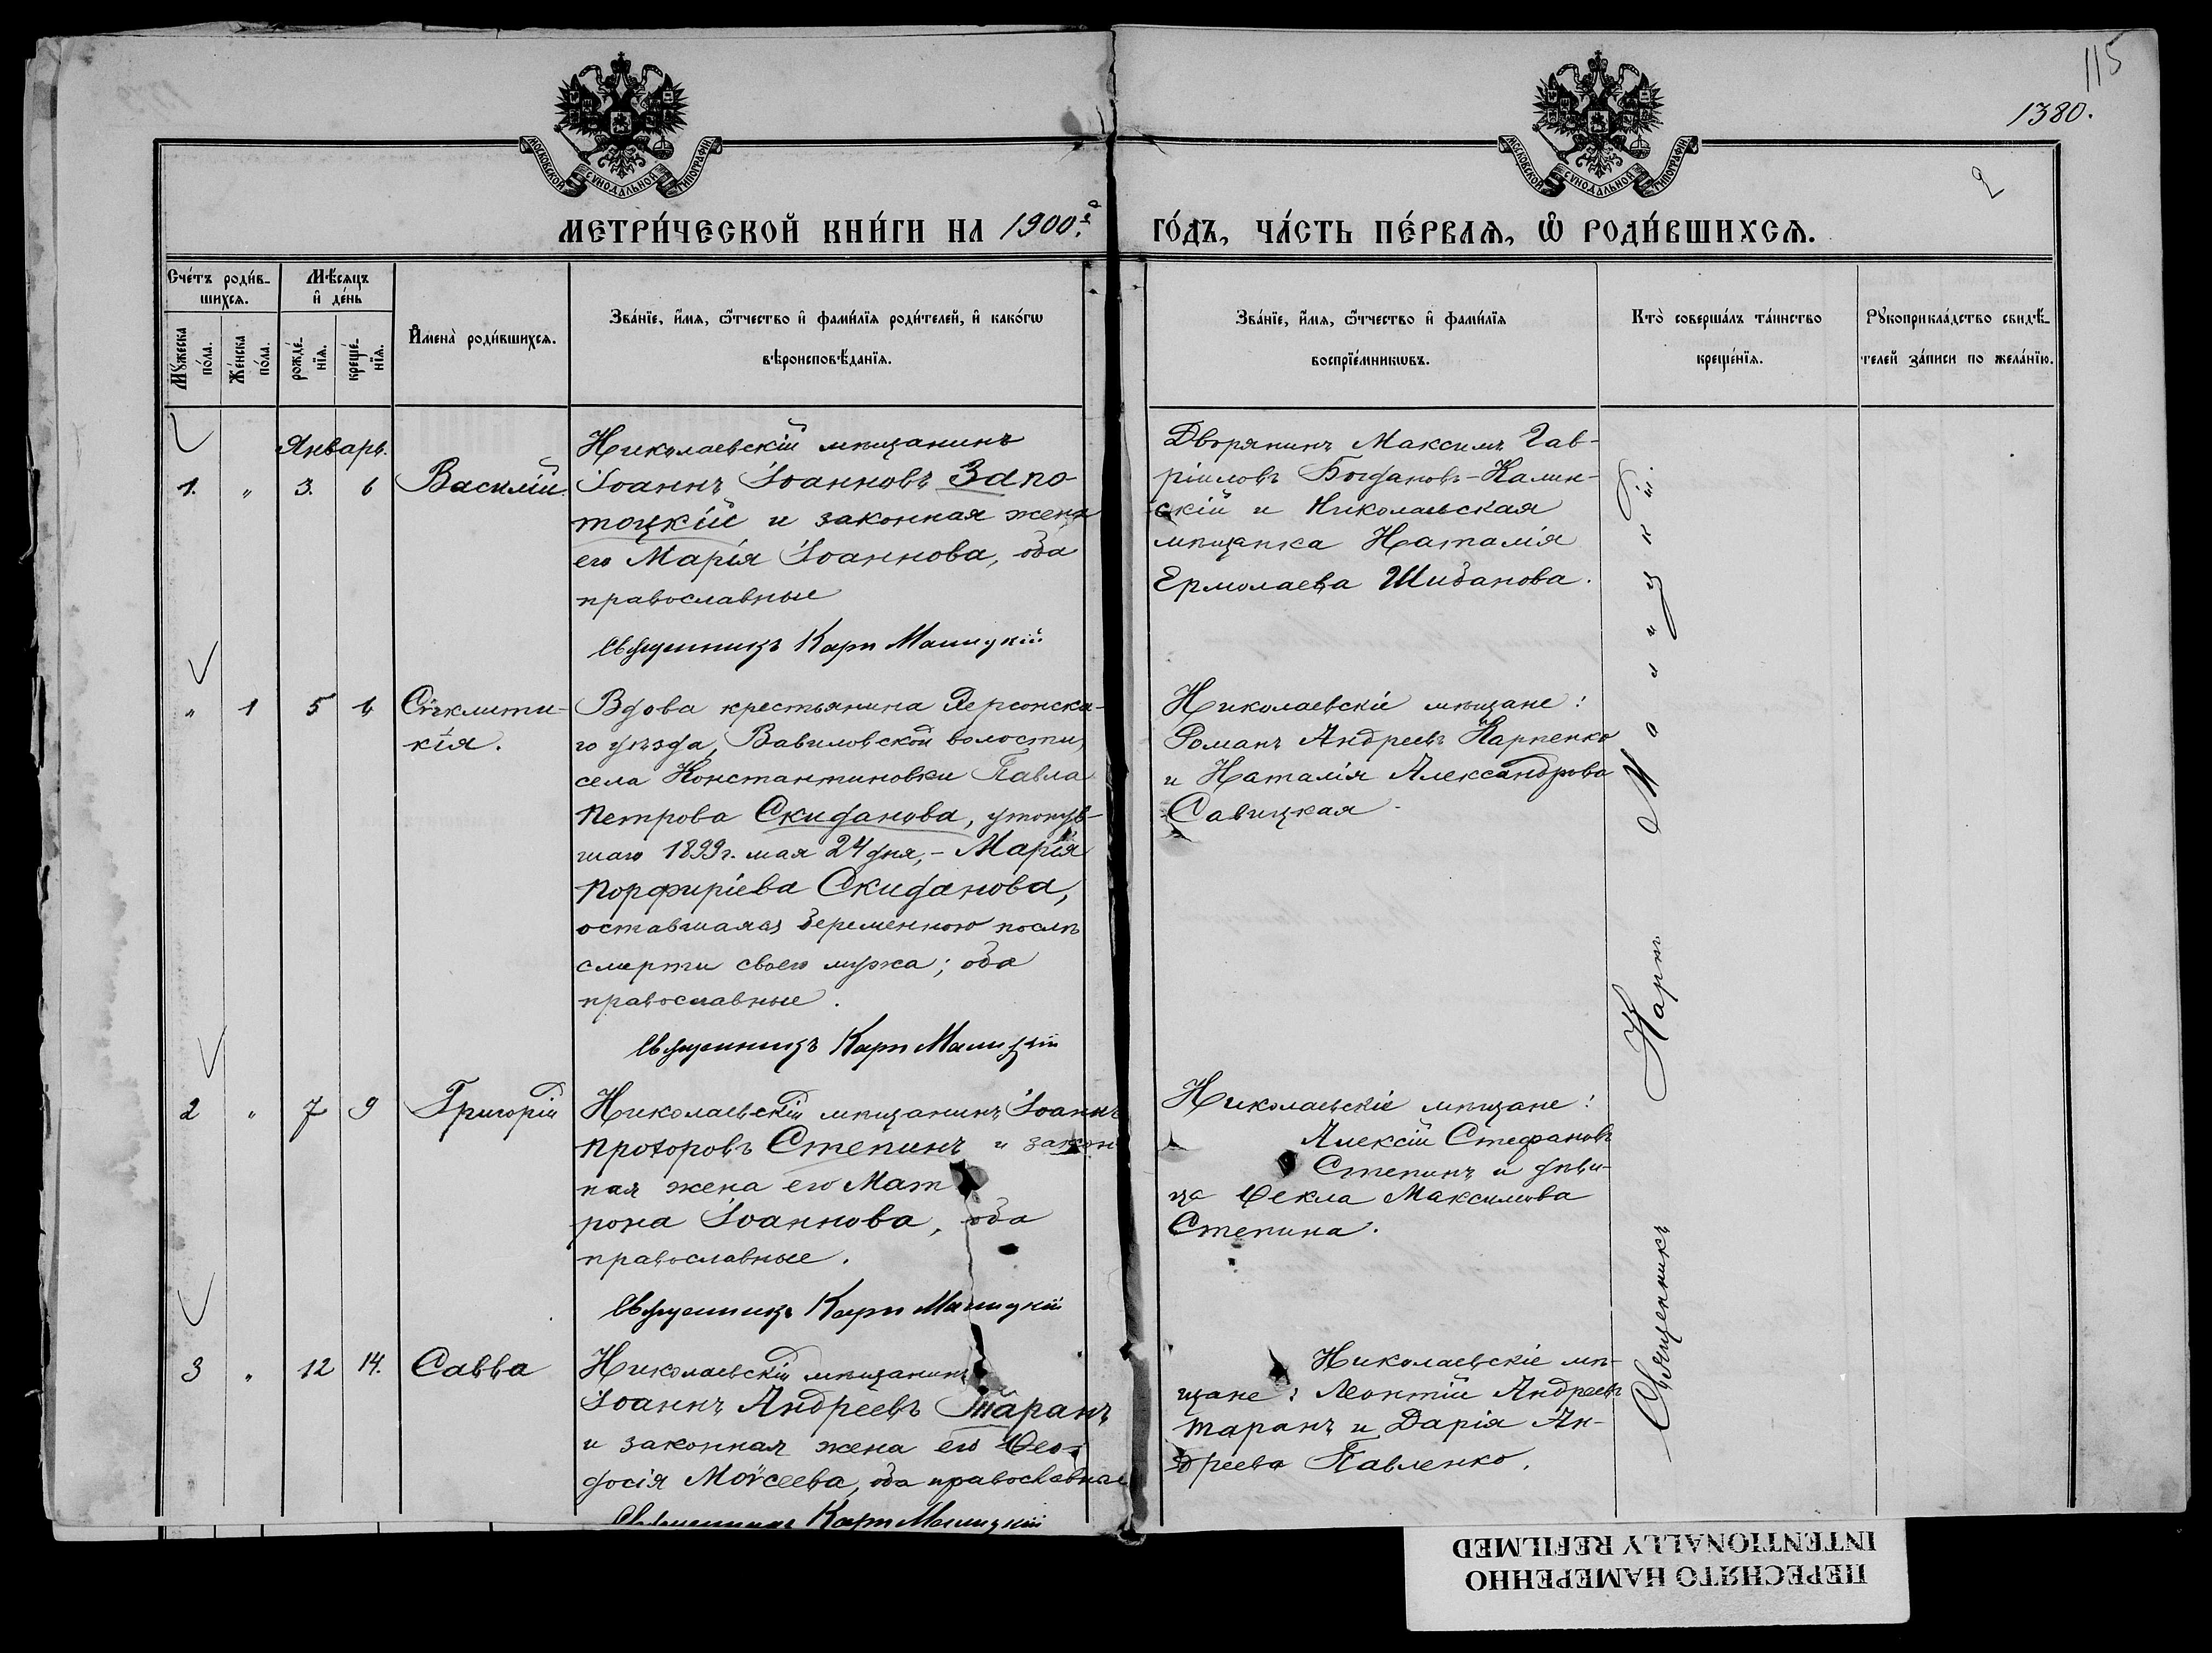 115
1380.
2
МОСКОВСКОЙ СѴНОДАЛЬНОЙ ТИПОГРАФІИ
МОСКОВСКОЙ СѴНОДАЛЬНОЙ ТИПОГРАФІИ
МЕТРИ́ЧЕСКОЙ КНИ́ГИ НА 1900й ГО́ДЪ, ЧА́СТЬ ПЕ́РВАѦ, Ѽ РОДИ́ВШИХСѦ.
Сче́тъ роди́в-
шихсѧ.
Мꙋ́жеска по́ла.
Же́нска по́ла.
Мѣ́сѧцъ
и҆ де́нь
рожде́-нїѧ.
креще́-нїѧ.
И҆мена̀ роди́вшихсѧ.
Зва́нїе, и҆́мѧ, ѻ҆́тчество и҆ фами́лїѧ роди́телей, и҆ како́гѡ
вѣроисповѣ́данїѧ.
Зва́нїе, и҆́мѧ, ѻ҆́тчество и҆ фами́лїѧ
воспрїе́мникѡвъ.
Кто̀ соверша́лъ та́инство
креще́нїѧ.
Рꙋкоприкла́дство свидѣ́-
телей за́писи по жела́нїю.
Январь.
1. " 3. 6 Василій.
Николаевскій мѣщанинъ
Іоаннъ Іоанновъ Запо-
тоцкій и законная жена
его Марія Іоаннова, оба
православные
Священникъ Карп Малицкій
Дворянинъ Максимъ Гав-
ріиловъ Богдановъ-Калин-
скій и Николаевская
мѣщанка Наталія
Ермолаева Шибанова.
" 1 5 6 Сѵгклити-
кія.
Вдова крестьянина Херсонска-
го уѣзда, Вавиловской волости,
села Константиновки Павла
Петрова Скиданова, утонув-
шаго 1899г. мая 24 дня,- Марія
Порфиріева Скиданова,
оставшаяся беременною послѣ
смерти своего мужа; оба
православные.
Священникъ Карп Малицкій
Николаевскіе мѣщане:
Романъ Андреевъ Карпенко
и Наталія Александрова
Савицкая.
2 " 7 9 Григорій
Николаевскій мѣщанинъ Іоаннъ
Прохоровъ Степинъ и закон
ная жена его Мат
рона Іоаннова, оба
православные.
Священникъ Карп Малицкій
Николаевскіе мѣщане:
Алексій Стефановъ
Степинъ и дѣви-
ца Ѳекла Максимова
Степина.
3 " 12 14. Савва
Николаевскій мѣщанинъ
Іоаннъ Андреевъ Таранъ
и законная жена его Ѳео-
досія Моѵсеева, оба православные
Священникъ Карп Малицкій
Николаевскіе мѣ-
щане: Леонтій Андреевъ
Таранъ и Дарія Ан-
дреева Павленко.
Священникъ Карпъ Малицкій.
ПЕРЕСНЯТО НАМЕРЕННО
INTENTIONALLY REFILMED